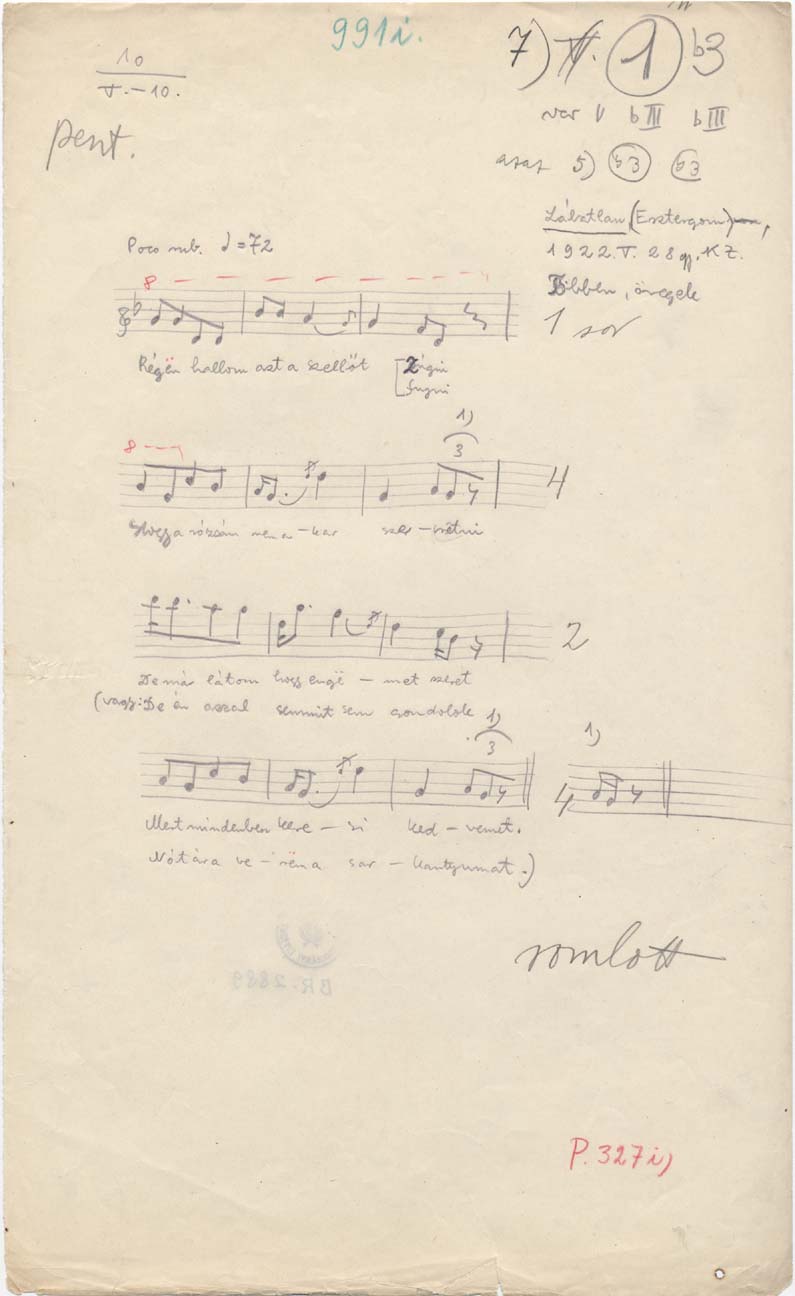 991i.
10
V.-10.
pent.
7) 1 b3
var V bIII bIII
azaz 5) b3 b3
Lábatlan (Esztergom),
1922. V. 28 gy. K Z.
Többen, öregek
1 sor
Poco rub. = 72
8
Régën hallom azt a szellőt
zúgni
fugni
8
1)
3
4
Hogy a rózsám nem a-kar szer-retni
2
De már látom hogy engë-met szeret
(vagy: De én azzal semmit sem gondolok
1)
3
1)
4
Mert mindenben kere-si ked-vemet.
Nótára ve-rëm a sar-kantyumat.)
romlott
BR. 2889
P. 327i)